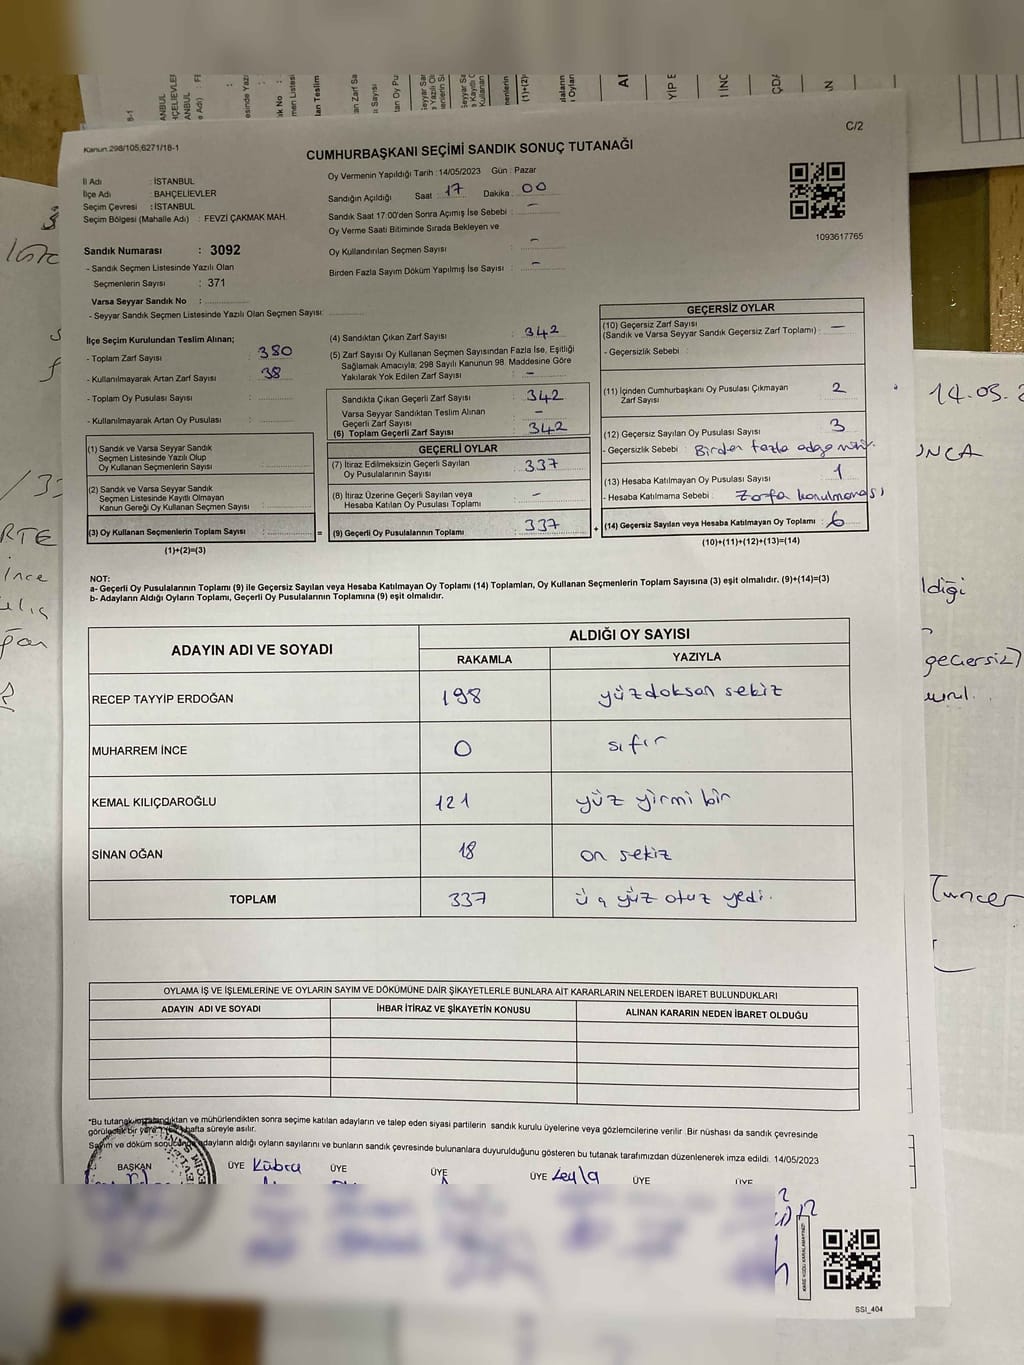 C/2
Kanun.298/105,6271/18-1
CUMHURBAŞKANI SEÇİMİ SANDIK SONUÇ TUTANAĞI
İl Adı : İSTANBUL
İlçe Adı : BAHÇELİEVLER
Seçim Çevresi : İSTANBUL
Seçim Bölgesi (Mahalle Adı) : FEVZİ ÇAKMAK MAH.
Oy Vermenin Yapıldığı Tarih : 14/05/2023 Gün : Pazar
Sandığın Açıldığı Saat 17 Dakika : 00
Sandık Saat 17:00'den Sonra Açımış İse Sebebi : –
Oy Verme Saati Bitiminde Sırada Bekleyen ve
Oy Kullandırılan Seçmen Sayısı –
Birden Fazla Sayım Döküm Yapılmış İse Sayısı : –
1093617765
Sandık Numarası : 3092
- Sandık Seçmen Listesinde Yazılı Olan
Seçmenlerin Sayısı : 371
Varsa Seyyar Sandık No :
- Seyyar Sandık Seçmen Listesinde Yazılı Olan Seçmen Sayısı:
İlçe Seçim Kurulundan Teslim Alınan;
- Toplam Zarf Sayısı : 380
- Kullanılmayarak Artan Zarf Sayısı : 38
- Toplam Oy Pusulası Sayısı :
- Kullanılmayarak Artan Oy Pusulası :
(1) Sandık ve Varsa Seyyar Sandık
Seçmen Listesinde Yazılı Olup
Oy Kullanan Seçmenlerin Sayısı :
(2) Sandık ve Varsa Seyyar Sandık
Seçmen Listesinde Kayıtlı Olmayan
Kanun Gereği Oy Kullanan Seçmen Sayısı :
(3) Oy Kullanan Seçmenlerin Toplam Sayısı :
(1)+(2)=(3)
(4) Sandıktan Çıkan Zarf Sayısı : 342
(5) Zarf Sayısı Oy Kullanan Seçmen Sayısından Fazla İse, Eşitliği
Sağlamak Amacıyla; 298 Sayılı Kanunun 98. Maddesine Göre
Yakılarak Yok Edilen Zarf Sayısı : –
Sandıkta Çıkan Geçerli Zarf Sayısı : 342
Varsa Seyyar Sandıktan Teslim Alınan
Geçerli Zarf Sayısı : –
(6) Toplam Geçerli Zarf Sayısı : 342
GEÇERLİ OYLAR
(7) İtiraz Edilmeksizin Geçerli Sayılan
Oy Pusulalarının Sayısı : 337
(8) İtiraz Üzerine Geçerli Sayılan veya
Hesaba Katılan Oy Pusulası Toplamı : –
= (9) Geçerli Oy Pusulalarının Toplamı : 337 +
GEÇERSİZ OYLAR
(10) Geçersiz Zarf Sayısı
(Sandık ve Varsa Seyyar Sandık Geçersiz Zarf Toplamı) : –
- Geçersizlik Sebebi :
(11) İçinden Cumhurbaşkanı Oy Pusulası Çıkmayan
Zarf Sayısı : 2
(12) Geçersiz Sayılan Oy Pusulası Sayısı : 3
- Geçersizlik Sebebi : Birden fazla adaya
(13) Hesaba Katılmayan Oy Pusulası Sayısı : 1
- Hesaba Katılmama Sebebi : Zarfa konulmaması
(14) Geçersiz Sayılan veya Hesaba Katılmayan Oy Toplamı : 6
(10)+(11)+(12)+(13)=(14)
NOT:
a- Geçerli Oy Pusulalarının Toplamı (9) ile Geçersiz Sayılan veya Hesaba Katılmayan Oy Toplamı (14) Toplamları, Oy Kullanan Seçmenlerin Toplam Sayısına (3) eşit olmalıdır. (9)+(14)=(3)
b- Adayların Aldığı Oyların Toplamı, Geçerli Oy Pusulalarının Toplamına (9) eşit olmalıdır.
ADAYIN ADI VE SOYADI
ALDIĞI OY SAYISI
RAKAMLA YAZIYLA
RECEP TAYYİP ERDOĞAN 198 yüzdoksan sekiz
MUHARREM İNCE 0 sıfır
KEMAL KILIÇDAROĞLU 121 yüz yirmi bir
SİNAN OĞAN 18 on sekiz
TOPLAM 337 üç yüz otuz yedi.
OYLAMA İŞ VE İŞLEMLERİNE VE OYLARIN SAYIM VE DÖKÜMÜNE DAİR ŞİKAYETLERLE BUNLARA AİT KARARLARIN NELERDEN İBARET BULUNDUKLARI
ADAYIN ADI VE SOYADI İHBAR İTİRAZ VE ŞİKAYETİN KONUSU ALINAN KARARIN NEDEN İBARET OLDUĞU
*Bu tutanak imzalandıktan ve mühürlendikten sonra seçime katılan adayların ve talep eden siyasi partilerin sandık kurulu üyelerine veya gözlemcilerine verilir. Bir nüshası da sandık çevresinde
görülecek bir yere 1 (bir) hafta süreyle asılır.
Sayım ve döküm sonucunda adayların aldığı oyların sayılarını ve bunların sandık çevresinde bulunanlara duyurulduğunu gösteren bu tutanak tarafımızdan düzenlenerek imza edildi. 14/05/2023
BAŞKAN ÜYE Kübra ÜYE ÜYE ÜYE Leyla ÜYE ÜYE
SSI_404
14.05.
geçersiz)
Tuncer